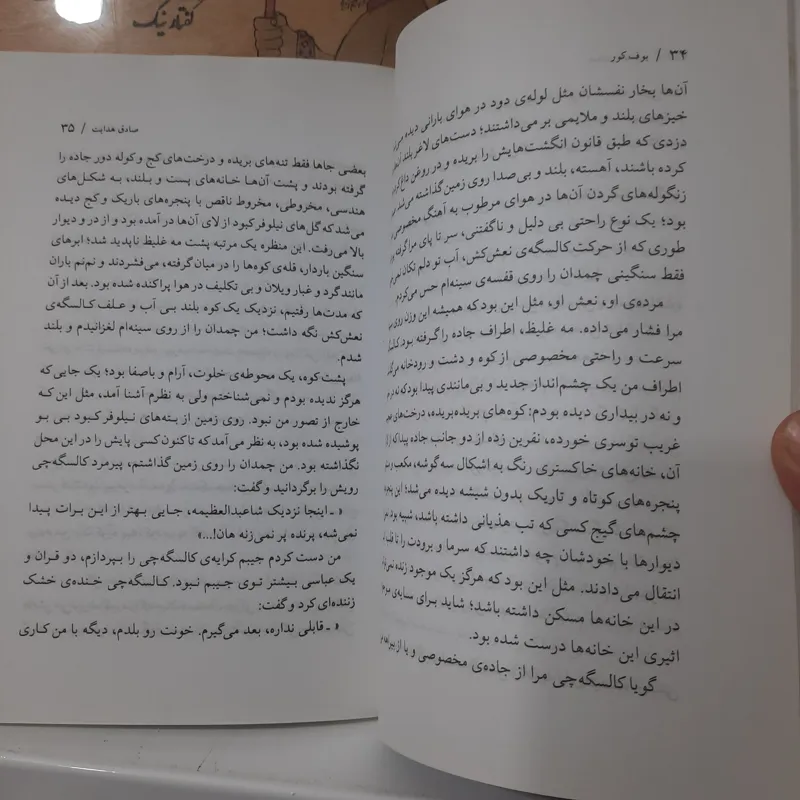 گفتار نیک
۳۴ / بوف کور
آن‌ها بخار نفسشان مثل لوله‌ی دود در هوای بارانی دیده
خیزهای بلند و ملایمی بر می‌داشتند؛ دست‌های لاغر
دزدی که طبق قانون انگشت‌هایش را بریده و در روغن داغ
کرده باشند، آهسته، بلند و بی‌صدا روی زمین گذاشته می‌شد
زنگوله‌های گردن آن‌ها در هوای مرطوب به آهنگ مخصوصی
بود؛ یک نوع راحتی بی دلیل و ناگفتنی، سر تا پای مرا گرفته
طوری که از حرکت کالسگه‌ی نعش‌کش، آب تو دلم تکان
فقط سنگینی چمدان را روی قفسه‌ی سینه‌ام حس می‌کردم.
مرده‌ی او، نعش او، مثل این بود که همیشه این وزن روی
مرا فشار می‌داده. مه غلیظ، اطراف جاده را گرفته بود.
سرعت و راحتی مخصوصی از کوه و دشت و رودخانه
اطراف من یک چشم‌انداز جدید و بی‌مانندی پیدا بود که نه در
و نه در بیداری دیده بودم: کوه‌های بریده‌بریده، درخت‌های
غریب توسری خورده، نفرین زده از دو جانب جاده پیدا که از
آن، خانه‌های خاکستری رنگ به اشکال سه گوشه، مکعب و
پنجره‌های کوتاه و تاریک بدون شیشه دیده می‌شد؛ این
چشم‌های گیج کسی که تب هذیانی داشته باشد، شبیه بود.
دیوارها با خودشان چه داشتند که سرما و برودت را تا قلب
انتقال می‌دادند. مثل این بود که هرگز یک موجود زنده
در این خانه‌ها مسکن داشته باشد؛ شاید برای سایه‌ی
اثیری این خانه‌ها درست شده بود.
گویا کالسگه‌چی مرا از جاده‌ی مخصوصی و یا از بیراهه
صادق هدایت / ۳۵
بعضی جاها فقط تنه‌های بریده و درخت‌های کج و کوله دور جاده را
گرفته بودند و پشت آن‌ها خانه‌های پست و بلند، به شکل‌های
هندسی، مخروطی، مخروط ناقص با پنجره‌های باریک و کج دیده
می‌شد که گل‌های نیلوفر کبود از لای آن‌ها در آمده بود و از در و دیوار
بالا می‌رفت. این منظره یک مرتبه پشت مه غلیظ ناپدید شد؛ ابرهای
سنگین باردار، قله‌ی کوه‌ها را در میان گرفته، می‌فشردند و نم‌نم باران
مانند گرد و غبار ویلان و بی تکلیف در هوا پراکنده شده بود. بعد از آن
که مدت‌ها رفتیم، نزدیک یک کوه بلند بی آب و علف کالسگه‌ی
نعش‌کش نگه داشت؛ من چمدان را از روی سینه‌ام لغزانیدم و بلند
شدم.
پشت کوه، یک محوطه‌ی خلوت، آرام و باصفا بود؛ یک جایی که
هرگز ندیده بودم و نمی‌شناختم ولی به نظرم آشنا آمد، مثل این که
خارج از تصور من نبود. روی زمین از بته‌های نیلوفر کبود بی بو
پوشیده شده بود، به نظر می‌آمد که تاکنون کسی پایش را در این محل
نگذاشته بود. من چمدان را روی زمین گذاشتم، پیرمرد کالسگه‌چی
رویش را برگردانید و گفت:
« ـ اینجا نزدیک شاعبدالعظیمه، جایی بهتر از این برات پیدا
نمی‌شه، پرنده پر نمی‌زنه هان!...»
من دست کردم جیبم کرایه‌ی کالسگه‌چی را بپردازم، دو قران و
یک عباسی بیشتر توی جیبم نبود. کالسگه‌چی خنده‌ی خشک
زننده‌ای کرد و گفت:
« ـ قابلی نداره، بعد می‌گیرم. خونت رو بلدم، دیگه با من کاری